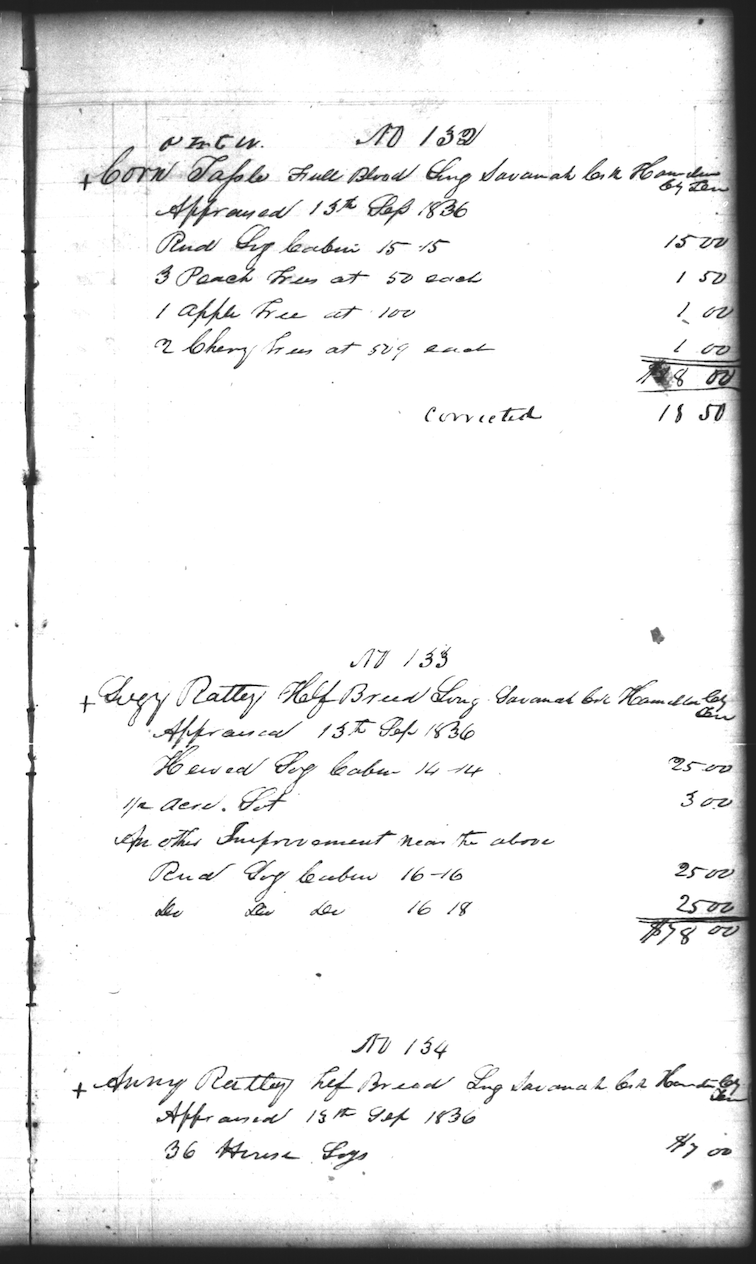 No 132
+ Corn Tassle Full Blood Lvng Savanah Crk Hamelton
Cty Ten
Appraised 13th Sep 1836
Rnd Log Cabin 15-15 1500
3 Peach Trees at 50 each 1 50
1 Apple Tree at 100 1 00
2 Chery Trees at 50 each 1 00
$18 00
Corrected 18 50
No 133
+ Sugy Ratley Hlf Breed Lvng Savanah Crk Hamelton Cty
Ten
Appraised 13th Sep 1836
Hewed Log Cabin 14-14 2500
1/2 acre Lot 300
An other Improvement near the above
Rnd Log Cabin 16-16 2500
Do Do Do 16 18 2500
$78 00
No 134
+ Anny Ratley hlf Breed Lvng Savanah Crk Hamelton Cty
Ten
Appraised 13th Sep 1836
36 House Logs $7 00